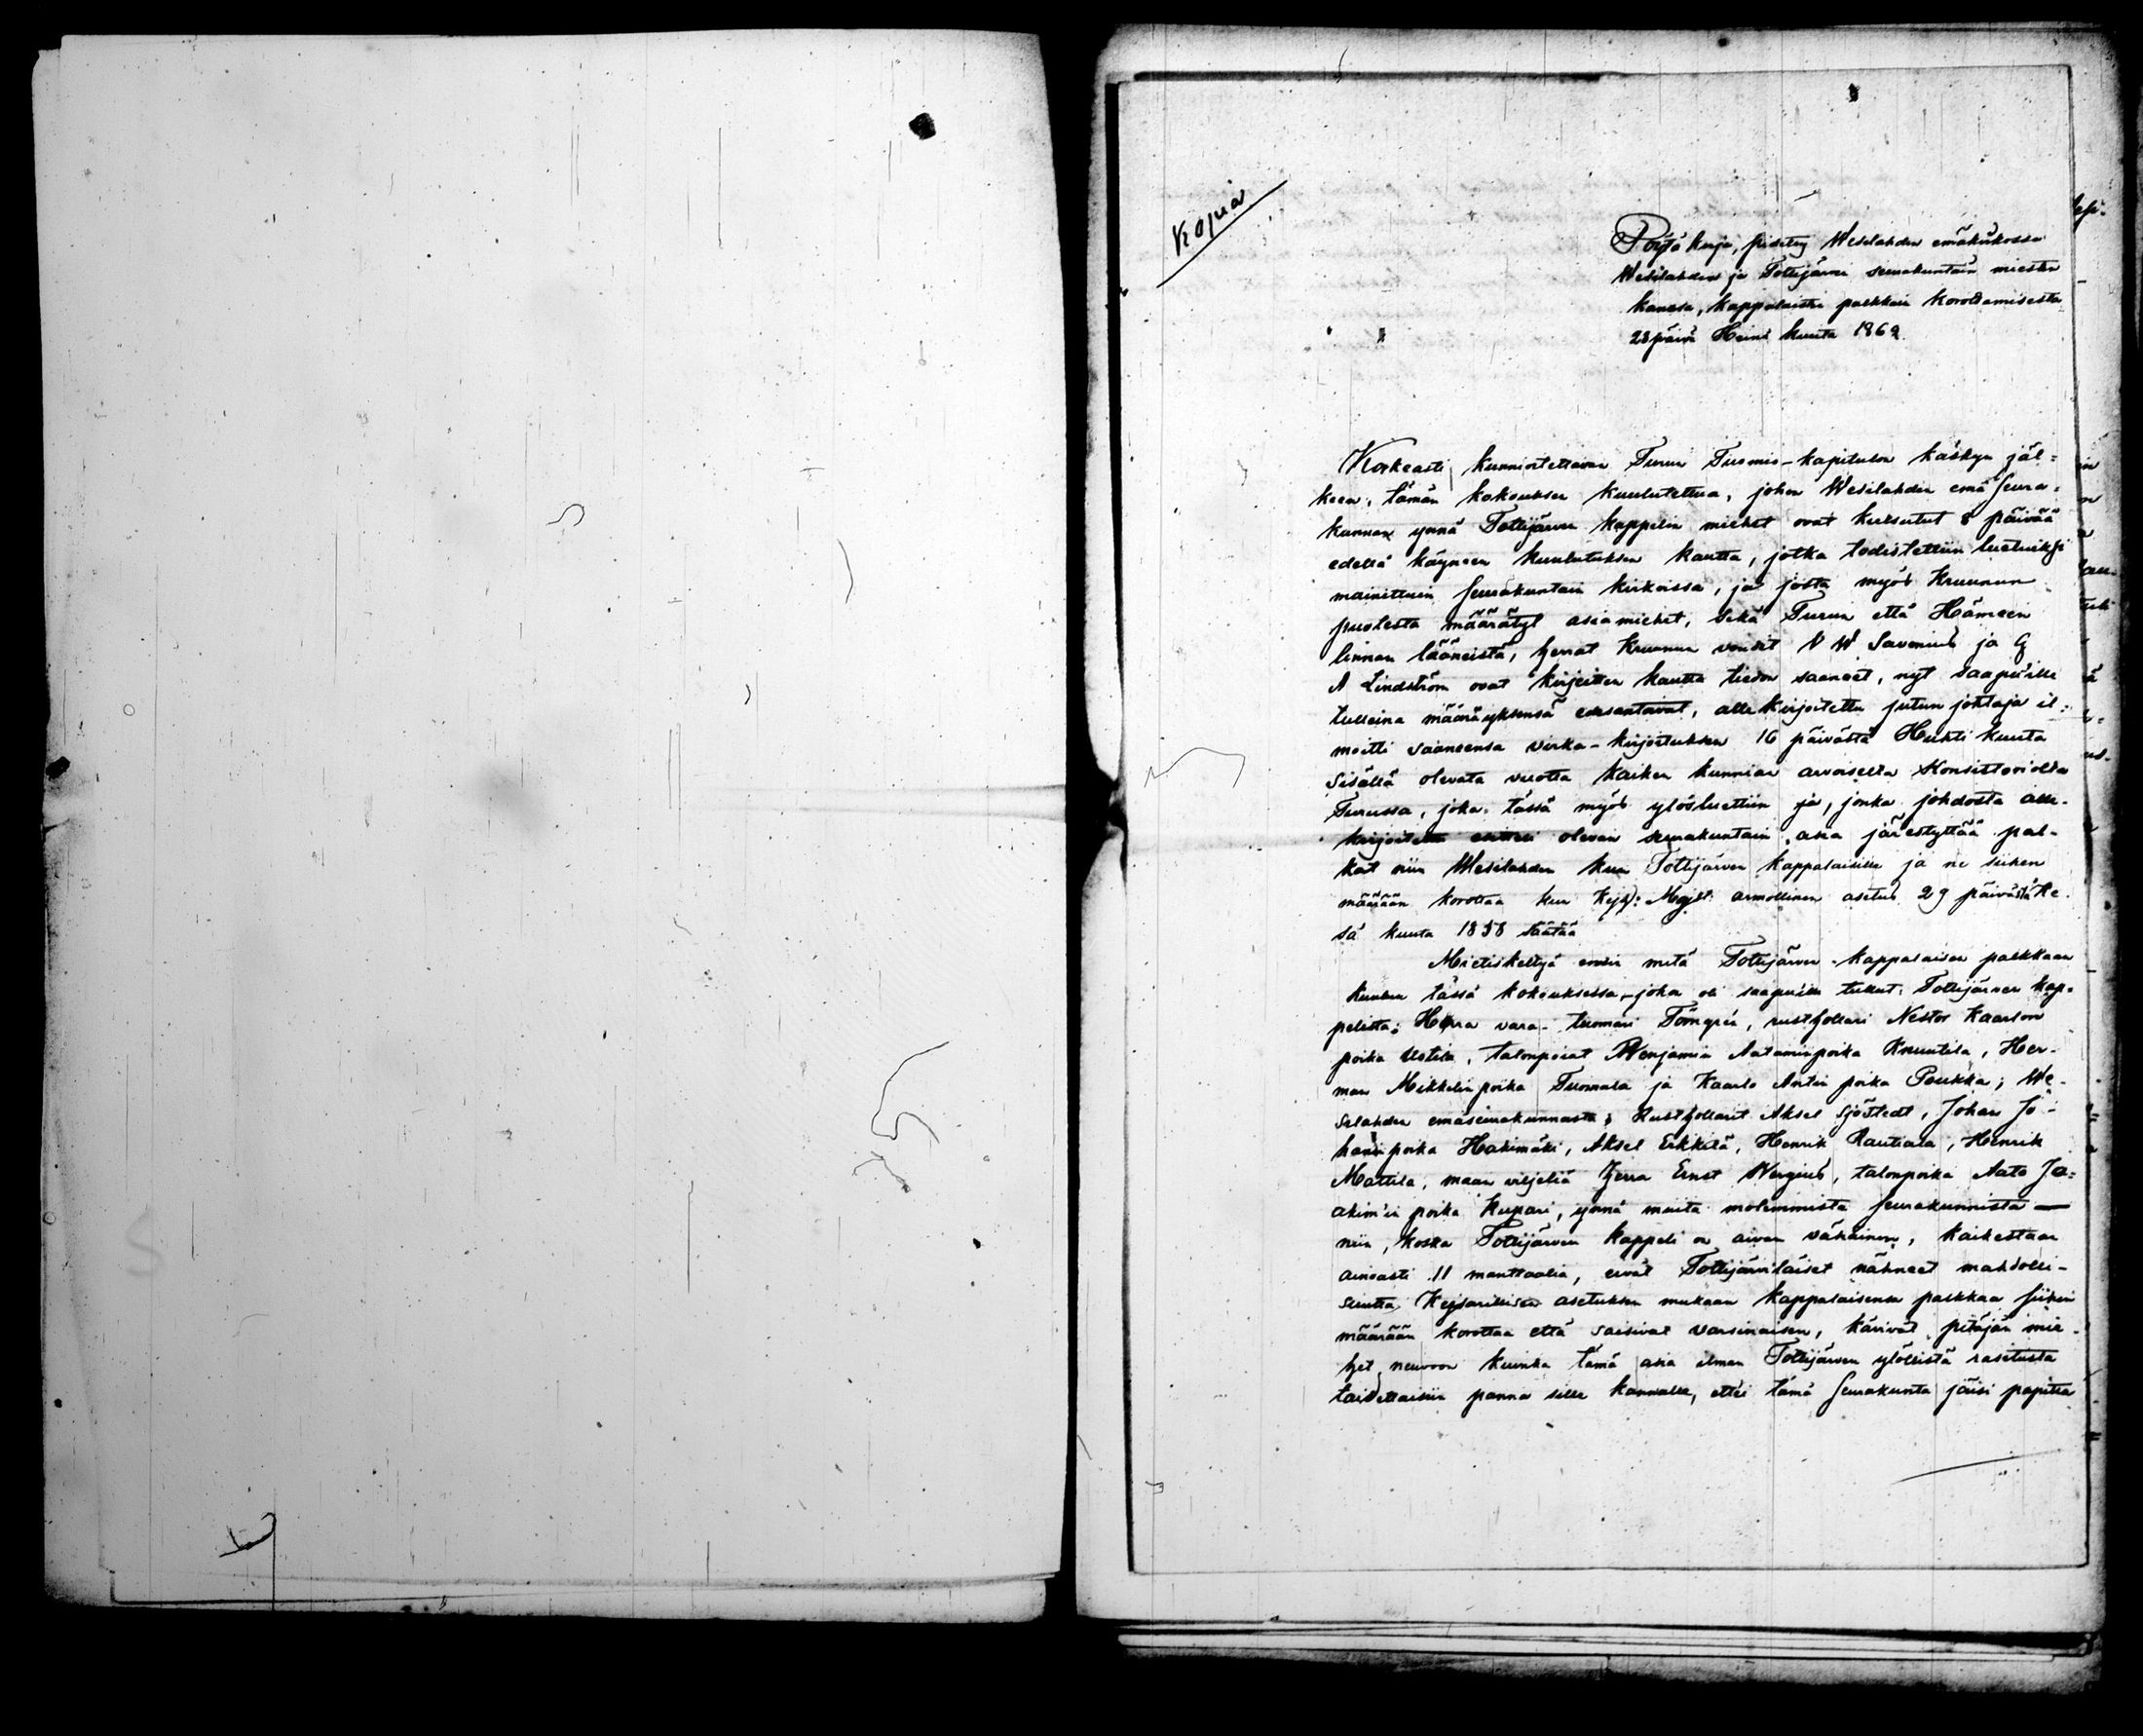 Kopia
Pöytä kirja, pidetty Wesilahden emäkirkossa
Wesilahden ja Tottijärven seurakuntain miesten
kanssa, kappalaisten palkkain korottamisesta
28 päivä Heinä kuuta 1869.
Korkeasti kunnioitettavan Turun Tuomio-kapitulin käskyn jäl-
keen, tämän kokouksen kuulutettua, johon Wesilahden emä seura-
kunnan ynnä Tottijärven kappelin miehet ovat kutsutut 8 päivää
edellä käyneen kuulutuksen kautta, jotka todistettiin luetuiksi
mainittuin seurakuntain kirkoissa, ja josta myös Kruunun
puolesta määrätyt asiamiehet, sekä Turun että Hämeen
linnan lääneistä, herrat Kruunun voudit N W Savenius ja G
A Lindström ovat kirjeitten kautta tiedon saaneet, nyt saapuille
tulleina määräyksensä edesantavat, alle kirjoitettu jutun johtaja il-
moitti saaneensa virka-kirjoituksen 16 päivästä Huhti kuuta
sisällä olevata vuotta kaiken kunnian arvoiselta Konsittoriolta
Turussa, joka tässä myös ylösluettiin ja, jonka johdosta alle-
kirjoitettu esitteli olevan seurakuntain asia järjestyttää pal-
kat niin Wesilahden kuin Tottijärven kappalaisille ja ne siihen
määrään korottaa kuin Keis: Majst: armollinen asetus 29 päivästä Ke-
sä kuuta 1858 säätää
Mietiskeltyä ensin mitä Tottijärven kappalaisen palkkaan
kuuluu tässä kokouksessa, johon oli saapuille tullut: Tottijärven kap-
pelista: Herra vara-tuomari Törngrén, rusthollari Nestor Kaarlon
poika Ustila, talonpojat Wenjamin Aataminpoika Knuutila, Her-
man Mikkelin poika Tuomala ja Kaarlo Antin poika Poukka; We-
silahden emäseurakunnasta; Rusthollarit Aksel Sjöstedt, Johan Jo-
hanin poika Hakimäki, Aksel Erkkilä, Henrik Rautiala, Henrik
Mattila, maan viljeliä herra Ernst Wergius, talonpoika Aato Jo-
akim'in poika Kupari, ynnä muita molemmista seurakunnista —
niin, koska Tottijärven kappeli on aivan vähäinen, kaikestaan
ainoasti 11 manttaalia, eivät Tottijärviläiset nähneet mahdolli-
suutta Keisarillisen asetuksen mukaan kappalaisensa palkkaa siihen
määrään korottaa että saisivat varsinaisen, kävivät pitäjän mie-
het neuvoon kuinka tämä asia ilman Tottijärven ylöllistä rasitusta
taidettaisiin panna sille kannalle, ettei tämä seurakunta jäisi papitta